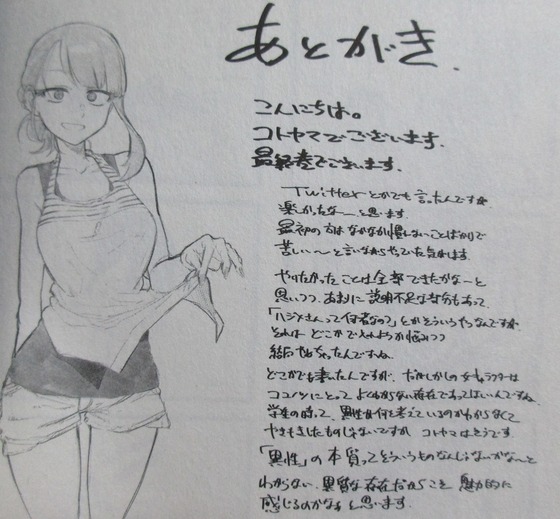 あとがき.
こんにちは。
コトヤマでございます.
最終巻でございます.
Twitterとかでも言ったんですが
楽しかったなーと思います.
最初の方はなかなか慣れないことばかりで
苦しい〜と言いながらやっていた気がします.
やりたかったことは全部できたかな〜と
思いつつ、あまりに説明不足な部分もあって、
「ハジメさんって何者なの?」とかそういうやつなんですが
それは どこかでやれようか悩みつつ
結局やめちゃったんですね.
どこかでも書いたんですが、だがしかしの女キャラクターは
ココノツにとって よくわからない存在であってほしいんですね.
学生の時って、異性が何を考えているのかわからなくて
やきもきしたものじゃないですか コトヤマはそうです.
「異性」の本質ってそういうものなんじゃないかな〜と
わからない、異質な存在だからこそ 魅力的に
感じるのかなぁと思います.